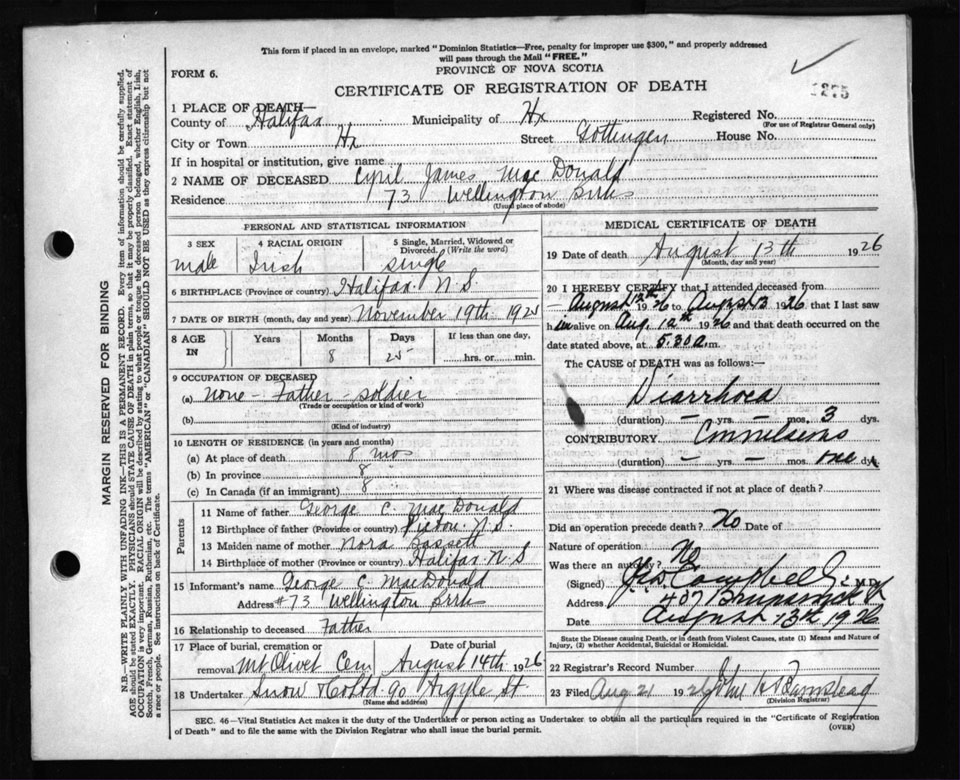 This form if placed in an envelope, marked "Dominion Statistics—Free, penalty for improper use $300," and properly addressed
will pass through the Mail "FREE."
PROVINCE OF NOVA SCOTIA
FORM 6.
CERTIFICATE OF REGISTRATION OF DEATH
1275
1 PLACE OF DEATH—
County of Halifax Municipality of Hx Registered No.
(For use of Registrar General only)
City or Town Hx Street Gottingen House No.
If in hospital or institution, give name
2 NAME OF DECEASED Cyril James MacDonald
Residence 73 Wellington Brrks
(Usual place of abode)
PERSONAL AND STATISTICAL INFORMATION
3 SEX 4 RACIAL ORIGIN 5 Single, Married, Widowed or Divorced. (Write the word)
male Irish single
6 BIRTHPLACE (Province or country) Halifax N.S.
7 DATE OF BIRTH (month, day and year) November 19th 1925
8 AGE IN Years Months Days If less than one day,
8 25 hrs. or min.
9 OCCUPATION OF DECEASED
(a) none - Father - soldier
(Trade or occupation or kind of work)
(b)
(Kind of industry)
10 LENGTH OF RESIDENCE (in years and months)
(a) At place of death 8 mos
(b) In province 8
(c) In Canada (if an immigrant) 8
Parents
11 Name of father George C. MacDonald
12 Birthplace of father (Province or country) Pictou N.S.
13 Maiden name of mother Nora Bassett
14 Birthplace of mother (Province or country) Halifax N.S
15 Informant's name George C. MacDonald
Address #73 Wellington Brrks
16 Relationship to deceased Father
17 Place of burial, cremation or removal Date of burial
Mt Olivet Cem August 14th 1926
18 Undertaker Snow & Co Ltd 90 Argyle St
(Name and address)
MEDICAL CERTIFICATE OF DEATH
19 Date of death August 13th 1926
(Month, day and year)
20 I HEREBY CERTIFY that I attended deceased from
August 12th 1926 to August 13 1926 that I last saw
him alive on Aug. 12th 1926 and that death occurred on
date stated above, at 5.30 a.m.
The CAUSE of DEATH was as follows:—
Diarrhoea
(duration) — yrs. — mos. 3 dys.
CONTRIBUTORY Convulsions
(duration) — yrs. — mos. one dys
21 Where was disease contracted if not at place of death?
Did an operation precede death? No Date of
Nature of operation
Was there an autopsy? No
(Signed) Campbell M.D.
Address 407 Brunswick St
Date August 13th 1926
State the Disease causing Death, or in death from Violent Causes, state (1) Means and Nature of
Injury, (2) whether Accidental, Suicidal or Homicidal.
22 Registrar's Record Number
23 Filed Aug 21 1926 John
(Division Registrar)
SEC. 46—Vital Statistics Act makes it the duty of the Undertaker or person acting as Undertaker to obtain all the particulars required in the "Certificate of Registration
of Death" and to file the same with the Division Registrar who shall issue the burial permit.
(OVER)
MARGIN RESERVED FOR BINDING
N.B.—WRITE PLAINLY WITH UNFADING INK—THIS IS A PERMANENT RECORD. Every item of information should be carefully supplied.
AGE should be stated EXACTLY. PHYSICIANS should STATE CAUSE OF DEATH in plain terms, so that it may be properly classified. Exact statement of
OCCUPATION is very important. RACIAL ORIGIN will be described by stating to what people or tongue the deceased person belonged, whether English, Irish,
Scotch, French, German, Russian, Ruthenian, etc. The terms "AMERICAN" or "CANADIAN" SHOULD NOT BE USED as they express citizenship but not
a race or people. See instructions on back of Certificate.